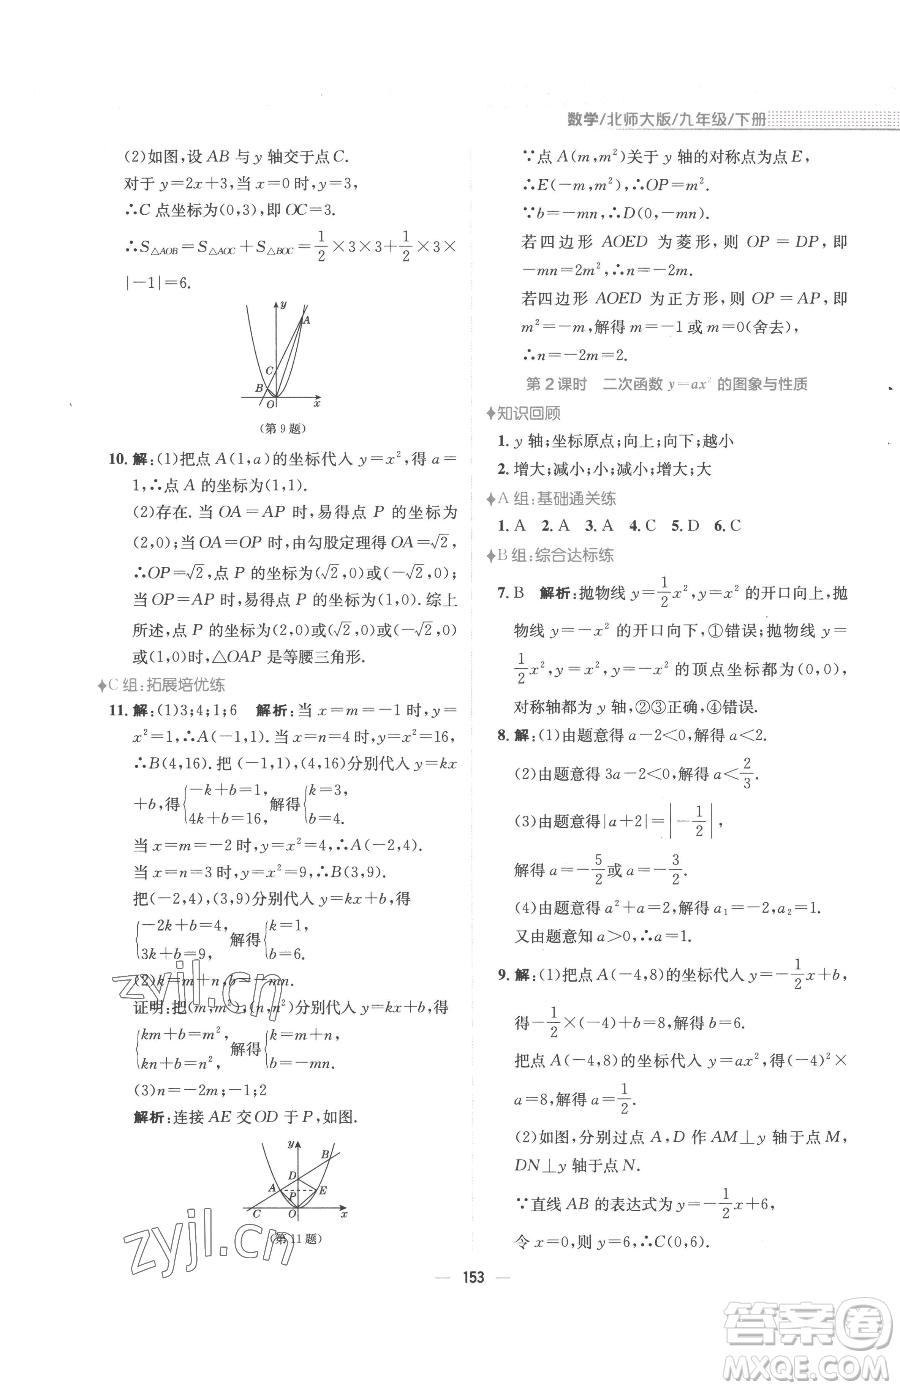 数学/北师大版/九年级/下册
(2)如图,设 AB 与 y 轴交于点C.
对于 y=2x+3,当 x=0 时,y=3,
∴C 点坐标为(0,3),即 OC=3.
∴S△AOB=S△AOC+S△BOC=1/2×3×3+1/2×3×
|-1|=6.
y
A
C
B
O
x
(第 9 题)
10. 解:(1)把点 A(1,a)的坐标代入 y=x²,得 a=
1,∴点 A 的坐标为(1,1).
(2)存在. 当 OA=AP 时,易得点 P 的坐标为
(2,0);当 OA=OP 时,由勾股定理得 OA=√2,
∴OP=√2,点 P 的坐标为(√2,0)或(-√2,0);
当 OP=AP 时,易得点 P 的坐标为(1,0).综上
所述,点 P 的坐标为(2,0)或(√2,0)或(-√2,0)或
(1,0)时,△OAP 是等腰三角形.
C 组:拓展培优练
11. 解:(1)3;4;1;6 解析:当 x=m=-1 时,y=
x²=1,∴A(-1,1);当 x=n=4 时,y=x²=16,
∴B(4,16).把(-1,1),(4,16)分别代入 y=kx
+b,得{-k+b=1, 4k+b=16, 解得{k=3, b=4.
当 x=m=-2 时,y=x²=4,∴A(-2,4).
当 x=n=3 时,y=x²=9,∴B(3,9).
把(-2,4),(3,9)分别代入 y=kx+b,得
{-2k+b=4, 3k+b=9, 解得{k=1, b=6.
(2)k=m+n,b=-mn.
证明:把(m,m²),(n,n²)分别代入 y=kx+b,得
{km+b=m², kn+b=n², 解得{k=m+n, b=-mn.
(3)n=-2m;-1;2
解析:连接 AE 交 OD 于 P,如图.
y
B
D
A
P
E
C
O
x
(第 11 题)
∵点 A(m,m²)关于 y 轴的对称点为点 E,
∴E(-m,m²),∴OP=m².
∵b=-mn,∴D(0,-mn).
若四边形 AOED 为菱形,则 OP=DP,即
-mn=2m²,∴n=-2m.
若四边形 AOED 为正方形,则 OP=AP,即
m²=-m,解得 m=-1 或 m=0(舍去),
∴n=-2m=2.
第 2 课时 二次函数 y=ax² 的图象与性质
知识回顾
1. y 轴;坐标原点;向上;向下;越小
2. 增大;减小;小;减小;增大;大
A 组:基础通关练
1. A 2. A 3. A 4. C 5. D 6. C
B 组:综合达标练
7. B 解析:抛物线 y=1/2x²,y=x² 的开口向上,抛
物线 y=-x² 的开口向下,①错误;抛物线 y=
1/2x²,y=x²,y=-x² 的顶点坐标都为(0,0),
对称轴都为 y 轴,②③正确,④错误.
8. 解:(1)由题意得 a-2<0,解得 a<2.
(2)由题意得 3a-2<0,解得 a<2/3.
(3)由题意得|a+2|=|-1/2|,
解得 a=-5/2或 a=-3/2.
(4)由题意得 a²+a=2,解得 a₁=-2,a₂=1.
又由题意知 a>0,∴a=1.
9. 解:(1)把点 A(-4,8)的坐标代入 y=-1/2x+b,
得-1/2×(-4)+b=8,解得 b=6.
把点 A(-4,8)的坐标代入 y=ax²,得(-4)²×
a=8,解得 a=1/2.
(2)如图,分别过点 A,D 作 AM⊥y 轴于点 M,
DN⊥y 轴于点 N.
∵直线 AB 的表达式为 y=-1/2x+6,
令 x=0,则 y=6,∴C(0,6).
153
zyjl.cn
zyjl.cn
答案圈
MXQE.COM